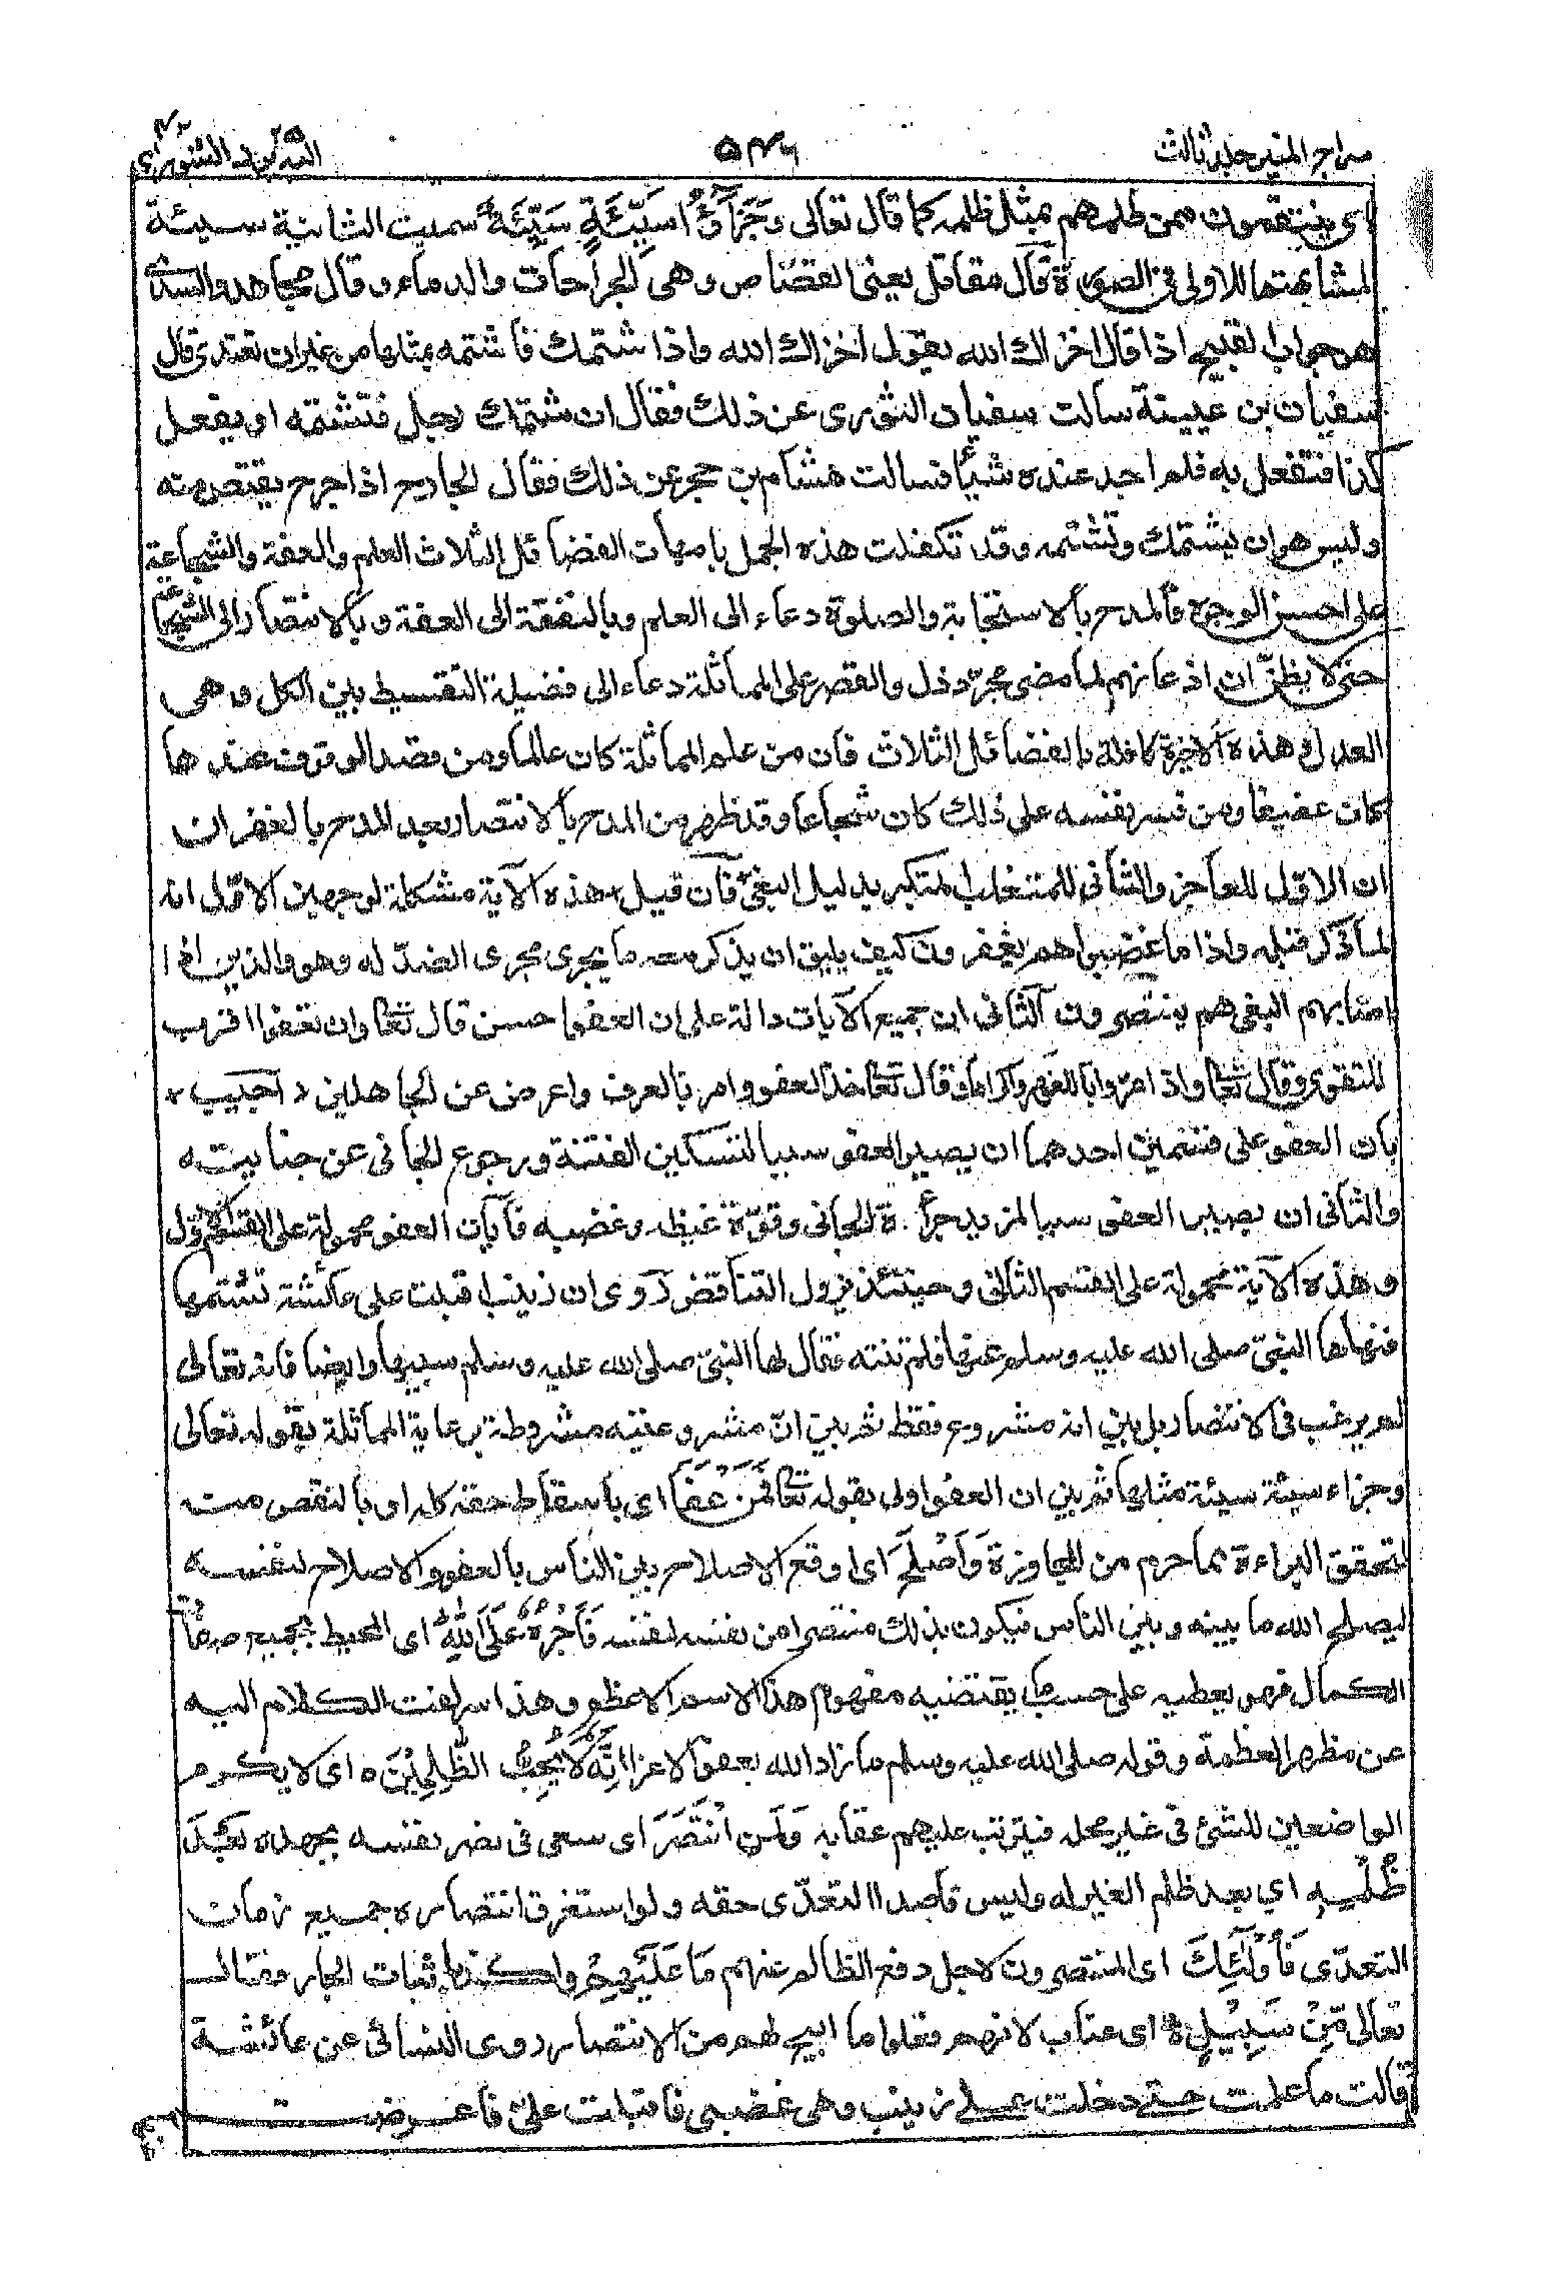 سراج المنير جلد ثالث
۵۴۶
اليه يرد ۲۵ الشورى ۴۲
اى ينتقمون ممن ظلمهم بمثل ظلمه كما قال تعالى وَجَزَآؤُا سَيِّئَةٍ سَيِّئَةٌ سميت الثانية سيئة
لمشابهتها للاولى فى الصورة قال مقاتل يعنى القصاص وهى الجراحات والدماء وقال مجاهد والسدى
هو جواب القبيح اذا قال اخزاك الله يقول اخزاك الله واذا شتمك فاشتمه بمثلها من غير ان تعتدى قال
سفيان بن عيينة سالت سفيان الثورى عن ذلك فقال ان شتمك رجل فتشتمه او يفعل
كذا فتفعل به فلم اجد عنده شيئا فسالت هشام بن حجر عن ذلك فقال الجارح اذا جرح يقتص منه
وليس هو ان يشتمك وتشتمه وقد تكفلت هذه الجمل بامهات الفضائل الثلاث العلم والعفة والشجاعة
على احسن الوجوه فالمدح بالاستجابة والصلوة دعاء الى العلم وبالنفقة الى العفة وبالانتصار الى الشجاعة
حتى لا يظنّ ان اذعانهم لما مضى مجرّد ذل والقصر على المماثلة دعاء الى فضيلة التقسيط بين الكل وهى
العدل وهذه الاخيرة كافلة بالفضائل الثلاث فان من علم المماثلة كان عالما ومن قصد الوقوف عندها
كان عفيفا ومن قسر نفسه على ذلك كان شجاعا وقد ظهر من المدح بالانتصار بعد المدح بالغفران
ان الاوّل للعاجز والثانى للمتغلب المتكبر بدليل البغى فان قيل هذه الآية مشكلة لوجهين الاوّل انه
لما ذكر قبله واذا ما غضبوا هم يغفرون كيف يليق ان يذكر معه ما يجرى مجرى الضدّ له وهو والذين اذا
اصابهم البغى هم ينتصرون الثانى ان جميع الآيات دالة على ان العفو احسن قال تعالى وان تعفوا اقرب
للتقوى وقال تعالى واذا مرّوا باللغو مرّوا كراما وقال تعالى خذ العفو وامر بالعرف واعرض عن الجاهلين د اجيب
بان العفو على قسمين احدهما ان يصير العفو سببا لتسكين الفتنة ورجوع الجانى عن جنايته
والثانى ان يصير العفو سببا لمزيد جرأة الجانى وقوّة غيظه وغضبه فآيات العفو محمولة على القسم الاوّل
وهذه الآية محمولة على القسم الثانى وحينئذ يزول التناقض روى ان زينب اقبلت على عائشة تشتمها
فنهاها النبىّ صلى الله عليه وسلم عنها فلم تنته فقال لها النبىّ صلى الله عليه وسلم سبيها وايضا فانه تعالى
لم يرغب فى الانتصار بل بين انه مشروع فقط ثم بين انّ مشروعيته مشروطة برعاية المماثلة بقوله تعالى
وجزاء سيئة سيئة مثلها ثم بين ان العفو اولى بقوله تعالى فَمَنْ عَفَا اى باسقاط حقه كله او بالنقص منه
لتحقق البراءة مما حرم من المجاوزة وَاَصْلَحَ اى اوقع الاصلاح بين الناس بالعفو والاصلاح لنفسه
ليصلح الله ما بينه وبين الناس فيكون بذلك منتصرا من نفسه لنفسه فَاَجْرُهٗ عَلَى اللّٰهِ اى المحيط بجميع صفات
الكمال فهو يعطيه على حسب ما يقتضيه مفهوم هذا الاسم الاعظم وهذا سر لفت الكلام اليه
عن مظهر العظمة وقوله صلى الله عليه وسلم ما زاد الله بعفو الا عزا اِنَّهٗ لَا يُحِبُّ الظّٰلِمِيْنَ ه اى لا يكرم
الواضعين للشئ فى غير محله فيترتب عليهم عقابه وَلَمَنِ انْتَصَرَ اى سعى فى نصر نفسه بجهده بَعْدَ
ظُلْمِهٖ اى بعد ظلم الغير له وليس قاصدا التعدّى حقه ولو استغرق انتصاره جميع زمان
التعدّى فَاُولٰٓئِكَ اى المنتصرون لاجل دفع الظالم عنهم مَا عَلَيْهِمْ واكد باثبات الجار فقال
تعالى مِّنْ سَبِيْلٍ ه اى عتاب لانهم فعلوا ما ابيح لهم من الانتصار روى النسائى عن عائشة
قالت ما علمت حتى دخلت على زينب وهى غضبى فاقبلت علىّ فاعرضت